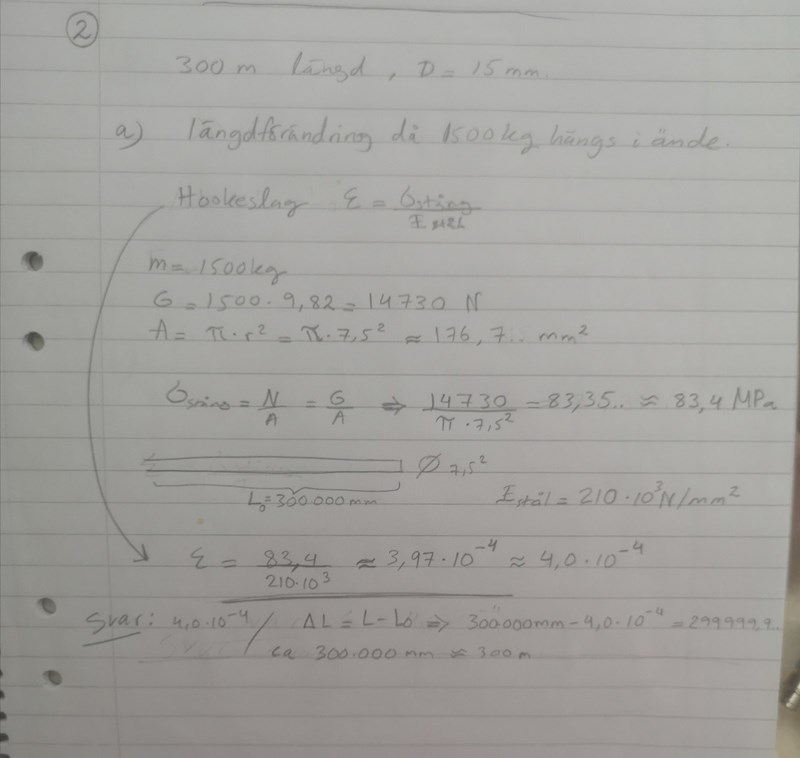 2
300 m längd, D = 15 mm.
a) längdförändring då 1500kg hängs i ände.
Hookeslag ε = σstång / Estål
m = 1500kg
G = 1500 · 9,82 = 14730 N
A = π · r² = π · 7,5² ≈ 176,7.. mm²
σstång = N/A = G/A ⇒ 14730 / π · 7,5² = 83,35.. ≈ 83,4 MPa
Ø 7,5²
L₀ = 300.000 mm Estål = 210 · 10³ N/mm²
ε = 83,4 / 210·10³ ≈ 3,97 · 10⁻⁴ ≈ 4,0 · 10⁻⁴
Svar: 4,0·10⁻⁴ / ΔL = L - L₀ ⇒ 300.000mm - 4,0·10⁻⁴ = 299999,9..
Svar / ca 300.000 mm ≈ 300 m